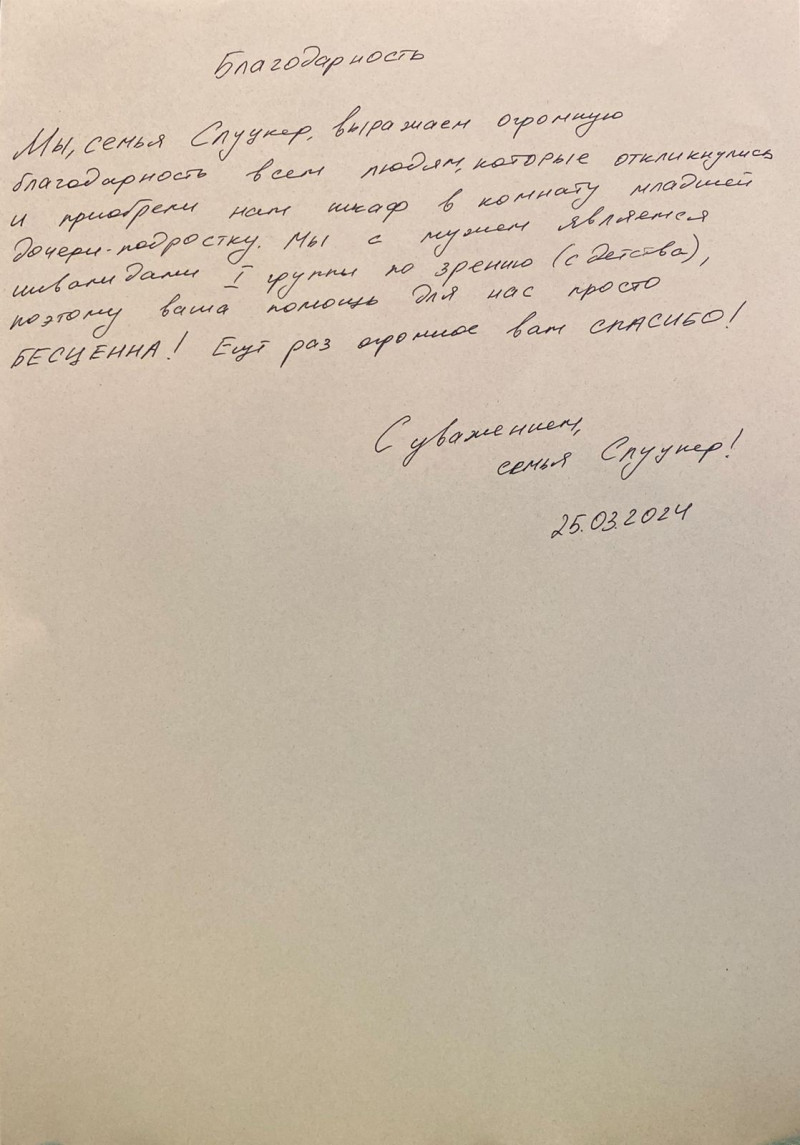 Благодарность
Мы, семья Слуцкер, выражаем огромную
благодарность всем людям, которые откликнулись
и приобрели нам шкаф в комнату младшей
дочери-подростку. Мы с мужем являемся
инвалидами I группы по зрению (с детства),
поэтому ваша помощь для нас просто
БЕСЦЕННА! Ещё раз огромное вам СПАСИБО!
С уважением,
семья Слуцкер!
25.03.2024